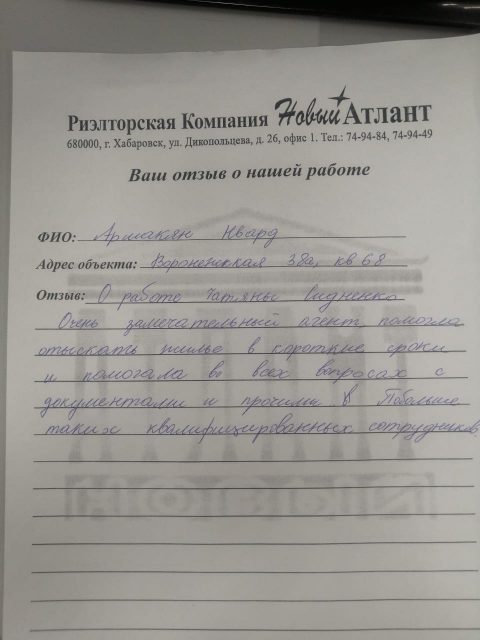 Риэлторская Компания Новый Атлант
680000, г. Хабаровск, ул. Дикопольцева, д. 26, офис 1. Тел.: 74-94-84, 74-94-49
Ваш отзыв о нашей работе
ФИО: Армакян Нвард
Адрес объекта: Воронежская 38а, кв 68
Отзыв: О работе Татьяны Сидненко
Очень замечательный агент, помогла
отыскать жилье в короткие сроки
и помогала во всех вопросах с
документами и прочими. Побольше
таких квалифицированных сотрудников